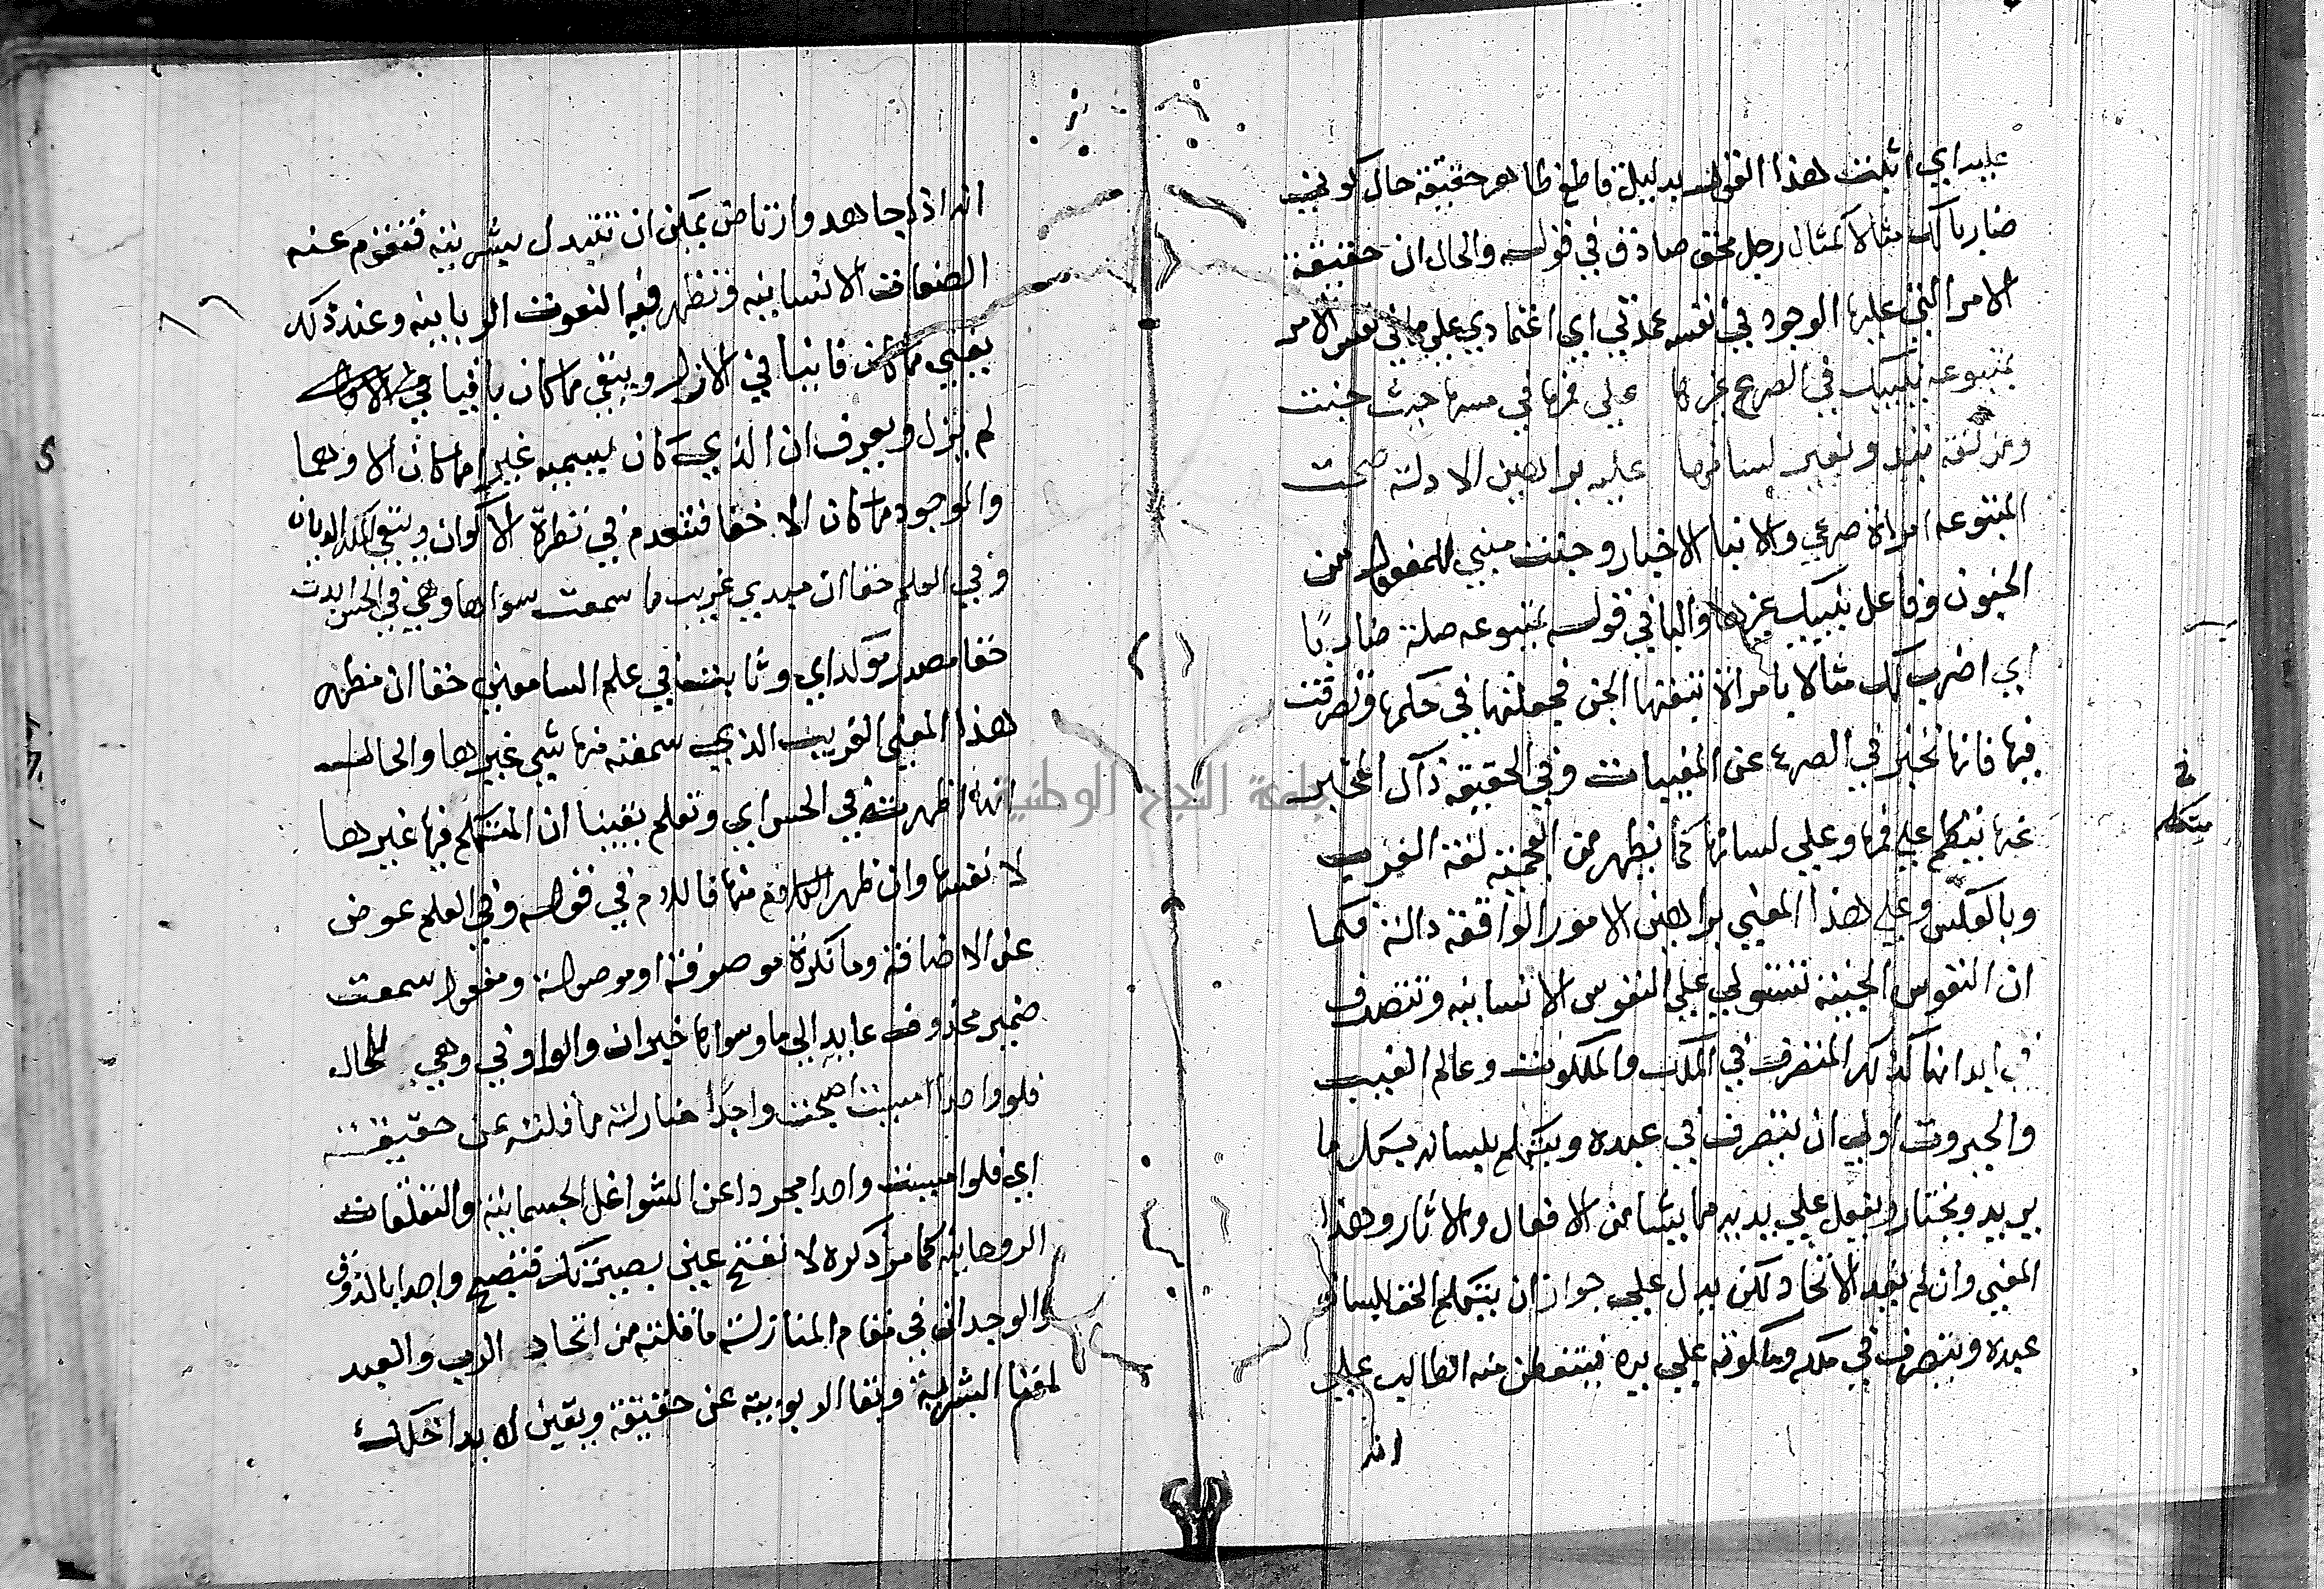 عليه اي اثبت هذا القول بدليل قاطع ظاهر حقيقة حال كوني
ضاربا لك مثالا كمثال رجل محق صادق في قوله والحال ان حقيقة
الامر التي عليها الوجود في نفسه عمدتي اي اعتمادي علي ما في نفس الامر
بمتبوعة ينبيك في الصرع غيرها على فمها في مسها حيث جنت
ومن لغة تبدو بغير لسانها عليه براهين الادلة صحت
المتبوعه امراة صرعي والانبا الاخبار وجنت مبني للمفعول من
الجنون وفاعل ينبيك غيرها والبا في قوله بمتبوعه صلة ضاربا
اي اضرب لك مثالا بامراة تتبعها الجن فجعلتها في حكمها وتصرفت
فيها فانها تخبر في الصرع عن المغيبات وفي الحقيقة ذاك المخبر
غيرها يتكلم علي فمها وعلي لسانها كما يظهر من العجمية لغة العرب
وبالعكس وعلي هذا المعني براهين الامور الواقعة دالة فكما
ان النفوس الجنية تستولي علي النفوس الانسانيه وتتصرف
في ابدانها كذلك المتصرف في الملك والملكوت وعالم الغيب
والجبروت اولي ان يتصرف في عبده ويتكلم بلسانه بكل ما
يريد ويختار ويفعل علي يديه ما يشا من الافعال والاثار وهذا
المعني وان لم يفد الاتحاد لكن يدل علي جواز ان يتكلم الحق بلسان
عبده ويتصرف في ملكه وملكوته علي يده فيتفطن منه الطالب علي
انه
متكلم
انه اذا جاهد وارتاض يمكن ان تتبدل بشريته فتقوم عنه
الصفات الانسانيه وتظهر فيه النعوت الربانيه وعند ذلك
يفني ما كان فانيا في الازل ويبقي ما كان باقيا
لم يزل ويعرف ان الذي كان يسميه غيرا ما كان الا وهما
والموجود ما كان الا حقا فتنعدم في نظرة الاكوان ويبقي الملك الديان
وفي العلم حقا ان مبدي غريب ما سمعت سواها وهي في الحس ابدت
حقا مصدر موكد اي وثابت في علم السامعين حقا ان مظهر
هذا المعني الغريب الذي سمعته منها شي غيرها والحال
انها اظهرت في الحس اي وتعلم يقينا ان المتكلم فيها غيرها
لا نفسها وان ظهر الكلام منها فاللام في قوله وفي العلم عوض
عن الاضافة وما نكرة موصوفة او موصولة ومفعول سمعت
ضمير محذوف عايد الي ما وسواها خبر ان والواو في وهي للحال
فلو واحدا امسيت اصبحت واجدا منازلة ما قلته عن حقيقة
اي فلو امسيت واحدا مجردا عن الشواغل الجسمانية والتعلقات
الروحانية كما مر ذكره لا تفتح عين بصيرتك فتصبح واجدا بالذوق
والوجدان في مقام المنازلة ما قلته من اتحاد الرب والعبد
لفنا البشرية وبقا الربوبية عن حقيقة ويقين